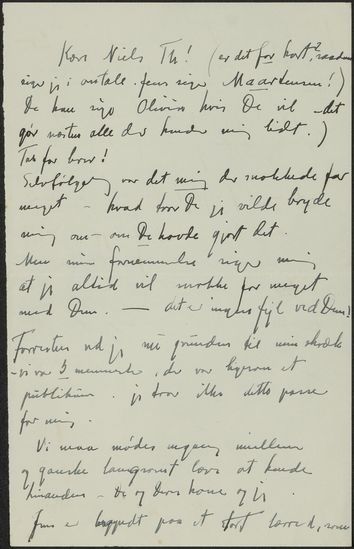 Kære Niels Th! (er det for kort?, saadan
siger jeg i omtale. Jens siger Maartensen!)
De kan sige Olivia hvis De vil det
gør næsten alle der kender mig lidt.)
Tak for brev!
Selvfølgelig var det mig der snakkede for
meget – hvad tror De jeg vilde bryde
mig om – om De havde gjort det.
Men min fornemmelse siger mig
at jeg altid vil snakke for meget
med Dem. — det er ingens fejl ved Dem!
Forresten ved jeg nu grunden til min skræk
– vi var 3 mennesker, der var ligesom et
publikum. jeg tror ikke dette passer
for mig.
Vi maa mødes engang imellem
og ganske langsomt lære at kende
hinanden – De og Deres kone og jeg.
Jens er begyndt paa et stort lærred, som